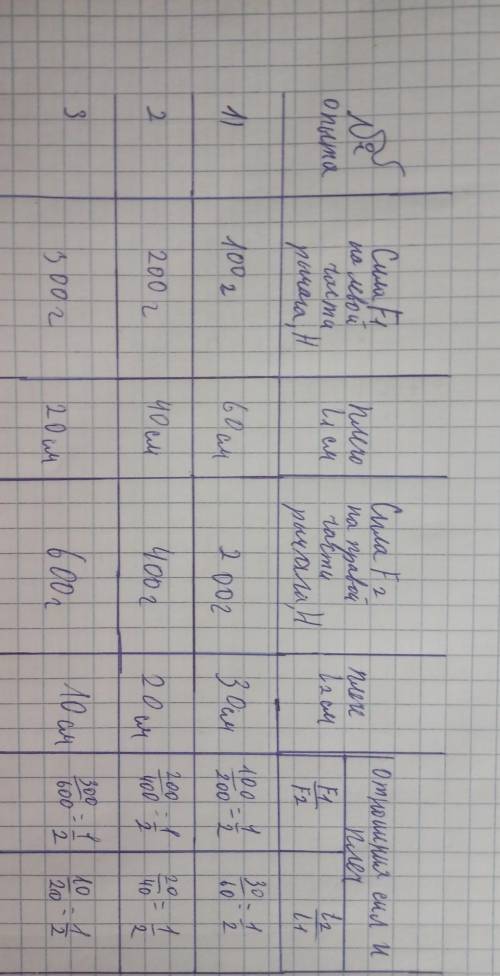 №
опыта
Сила F1
на левой
части
рычага, Н
плечо
l1 см
Сила F2
на правой
части
рычага, Н
плечо
l2 см
Отношения сил и
плеч
F1/F2
l2/l1
1) 100г 60см 200г 30см 100/200=1/2 30/60=1/2
2 200г 40см 400г 20см 200/400=1/2 20/40=1/2
3 300г 20см 600г 10см 300/600=1/2 10/20=1/2